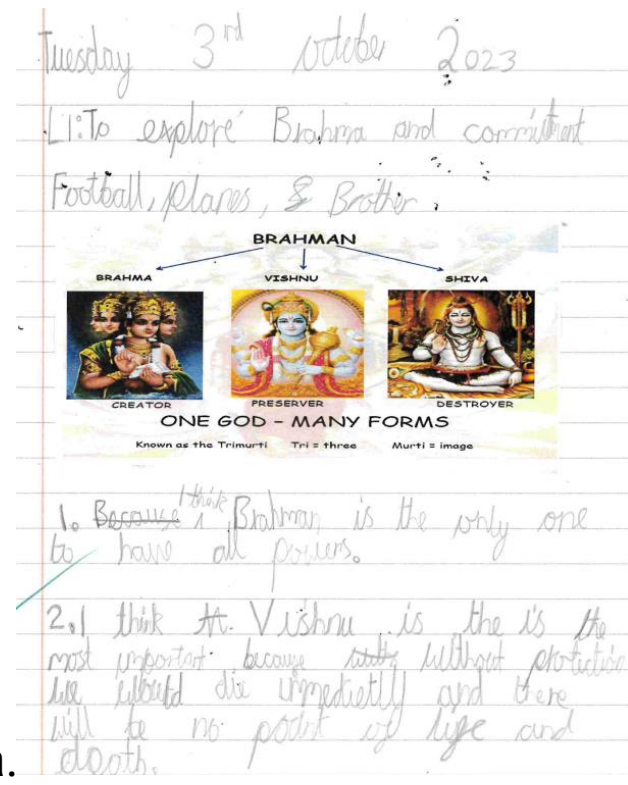 Tuesday 3rd October 2023
LI: To explore Brahma and commitment
Football, planes, & Brother.
BRAHMAN
BRAHMA VISHNU SHIVA
CREATOR PRESERVER DESTROYER
ONE GOD – MANY FORMS
Known as the Trimurti Tri = three Murti = image
1. Because I think Brahman is the only one
to have all powers.
2. I think Vishnu is the is the
most important because without protection
we would die immedietly and there
will be no point of life and
death.
n.